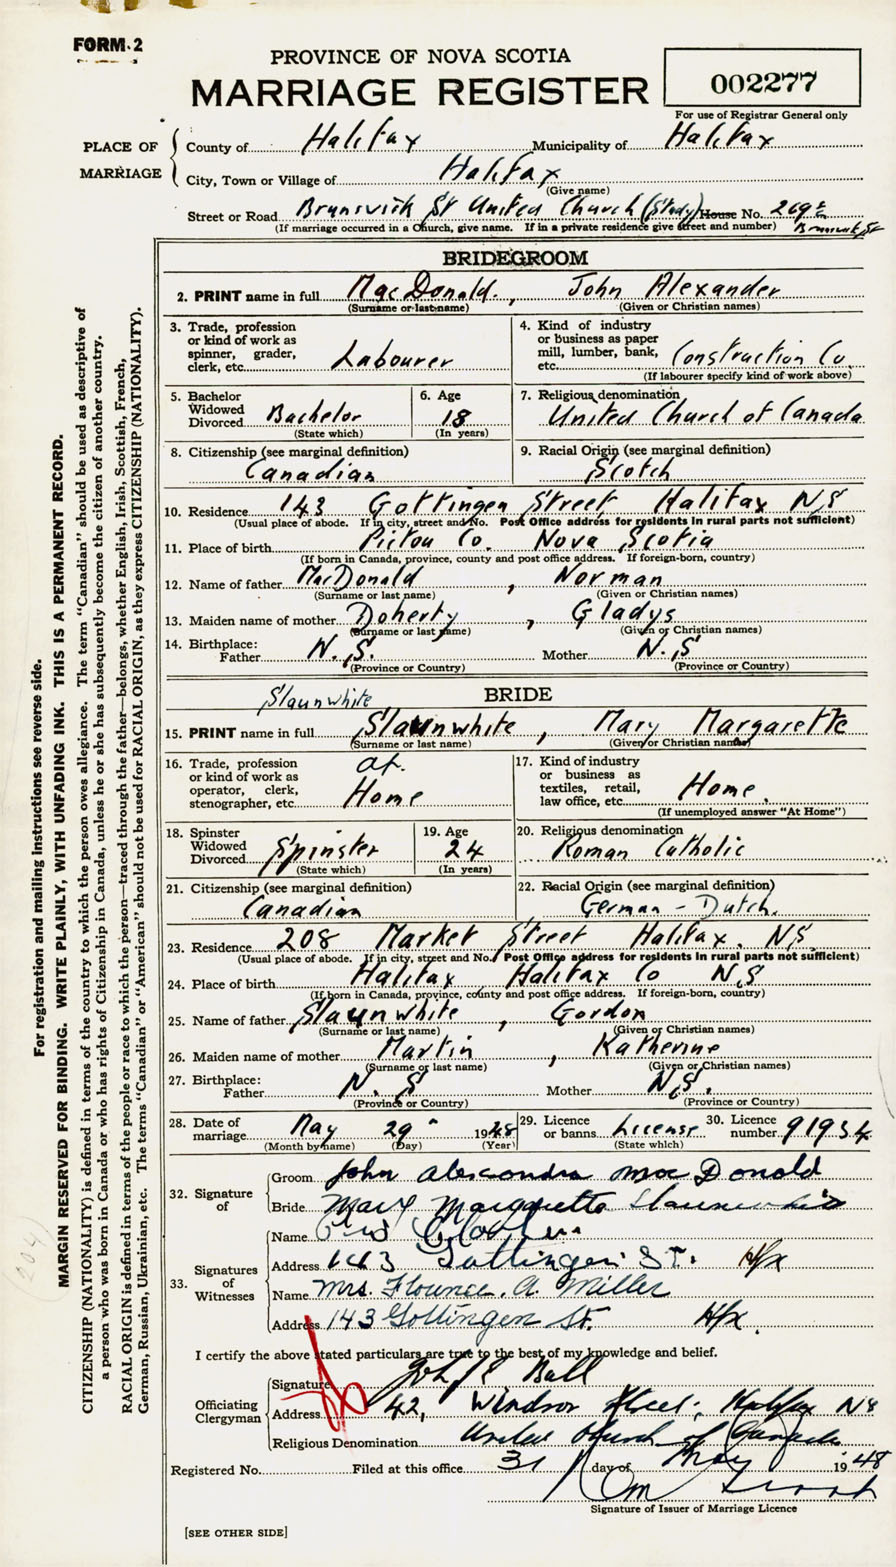 FORM 2
PROVINCE OF NOVA SCOTIA
MARRIAGE REGISTER
002277
For use of Registrar General only
PLACE OF MARRIAGE
County of Halifax Municipality of Halifax
City, Town or Village of Halifax
(Give name)
Street or Road Brunswick St United Church (Study) House No. 269
Brunswick St
(If marriage occurred in a Church, give name. If in a private residence give street and number)
BRIDEGROOM
2. PRINT name in full MacDonald, John Alexander
(Surname or last name) (Given or Christian names)
3. Trade, profession or kind of work as spinner, grader, clerk, etc. Labourer
4. Kind of industry or business as paper mill, lumber, bank, etc. Construction Co.
(If labourer specify kind of work above)
5. Bachelor Widowed Divorced Bachelor
(State which)
6. Age 18
(In years)
7. Religious denomination
United Church of Canada
8. Citizenship (see marginal definition)
Canadian
9. Racial Origin (see marginal definition)
Scotch
10. Residence 143 Gottingen Street Halifax NS
(Usual place of abode. If in city, street and No. Post Office address for residents in rural parts not sufficient)
11. Place of birth Pictou Co. Nova Scotia
(If born in Canada, province, county and post office address. If foreign-born, country)
12. Name of father MacDonald, Norman
(Surname or last name) (Given or Christian names)
13. Maiden name of mother Doherty, Gladys
(Surname or last name) (Given or Christian names)
14. Birthplace: Father N.S. Mother N.S
(Province or Country) (Province or Country)
BRIDE
Slaunwhite
15. PRINT name in full Slaunwhite, Mary Margarette
(Surname or last name) (Given or Christian names)
16. Trade, profession or kind of work as operator, clerk, stenographer, etc. at Home
17. Kind of industry or business as textiles, retail, law office, etc. Home
(If unemployed answer "At Home")
18. Spinster Widowed Divorced Spinster
(State which)
19. Age 24
(In years)
20. Religious denomination
Roman Catholic
21. Citizenship (see marginal definition)
Canadian
22. Racial Origin (see marginal definition)
German - Dutch.
23. Residence 208 Market Street Halifax. NS
(Usual place of abode. If in city, street and No. Post Office address for residents in rural parts not sufficient)
24. Place of birth Halifax Halifax Co NS
(If born in Canada, province, county and post office address. If foreign-born, country)
25. Name of father Slaunwhite, Gordon
(Surname or last name) (Given or Christian names)
26. Maiden name of mother Martin, Katherine
(Surname or last name) (Given or Christian names)
27. Birthplace: Father N.S Mother N.S.
(Province or Country) (Province or Country)
28. Date of marriage May 29 1948
(Month by name) (Day) (Year)
29. Licence or banns License
(State which)
30. Licence number 91934
32. Signature of
Groom John Alexandra MacDonald
Bride Mary Margarette Slaunwhite
33. Signatures of Witnesses
Name
Address 143 Gottingen St. Hfx
Name Mrs. Florence. A. Miller
Address 143 Gottingen St. Hfx.
I certify the above stated particulars are true to the best of my knowledge and belief.
Officiating Clergyman
Signature Ball
Address 42, Windsor Street, Halifax NS
Religious Denomination United Church of Canada
Registered No. Filed at this office 31 day of May 1948
Signature of Issuer of Marriage Licence
[SEE OTHER SIDE]
For registration and mailing instructions see reverse side.
MARGIN RESERVED FOR BINDING. WRITE PLAINLY, WITH UNFADING INK. THIS IS A PERMANENT RECORD.
CITIZENSHIP (NATIONALITY) is defined in terms of the country to which the person owes allegiance. The term "Canadian" should be used as descriptive of
a person who was born in Canada or who has rights of Citizenship in Canada, unless he or she has subsequently become the citizen of another country.
RACIAL ORIGIN is defined in terms of the people or race to which the person—traced through the father—belongs, whether English, Irish, Scottish, French,
German, Russian, Ukrainian, etc. The terms "Canadian" or "American" should not be used for RACIAL ORIGIN, as they express CITIZENSHIP (NATIONALITY).
(204)